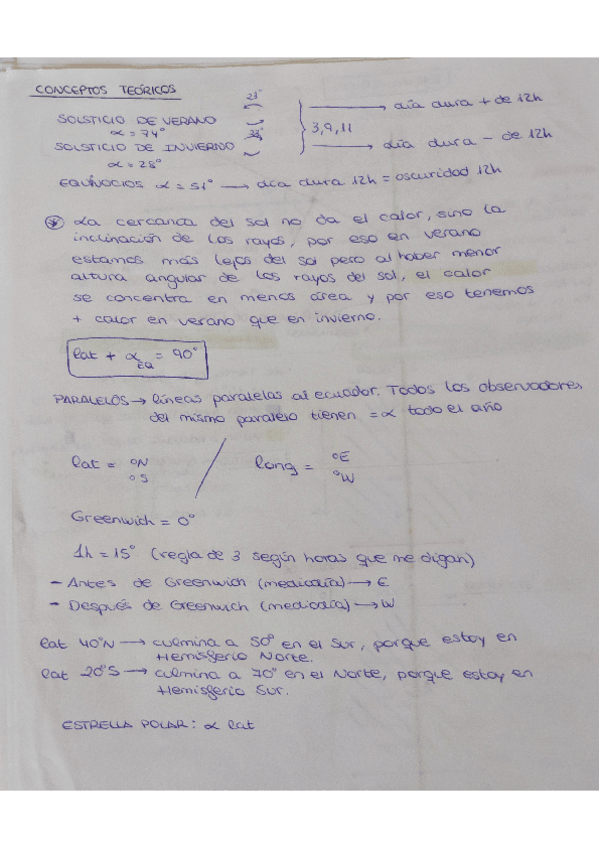 CONCEPTOS TEÓRICOS
SOLSTICIO DE VERANO 23° → día dura + de 12h
α = 74° 3,9,11
SOLSTICIO DE INVIERNO → día dura - de 12h
α = 28°
EQUINOCIOS α = 51° → día dura 12h = oscuridad 12h
La cercanca del sol no da el calor, sino la
inclinación de los rayos, por eso en verano
estamos más lejos del sol pero al haber menor
altura angular de los rayos del sol, el calor
se concentra en menos área y por eso tenemos
+ calor en verano que en invierno.
lat + α EQ = 90°
PARALELOS → líneas paralelas al ecuador. Todos los observadores,
del mismo paralelo tienen = α todo el año
lat = °N °S / long = °E °W
Greenwich = 0°
1h = 15° (regla de 3 según horas que me digan)
- Antes de Greenwich (mediodía) → E
- Después de Greenwich (mediodía) → W
lat 40°N → culmina a 50° en el Sur, porque estoy en
Hemisferio Norte.
lat 20°S → culmina a 70° en el Norte, porque estoy en
Hemisferio Sur.
ESTRELLA POLAR: α lat